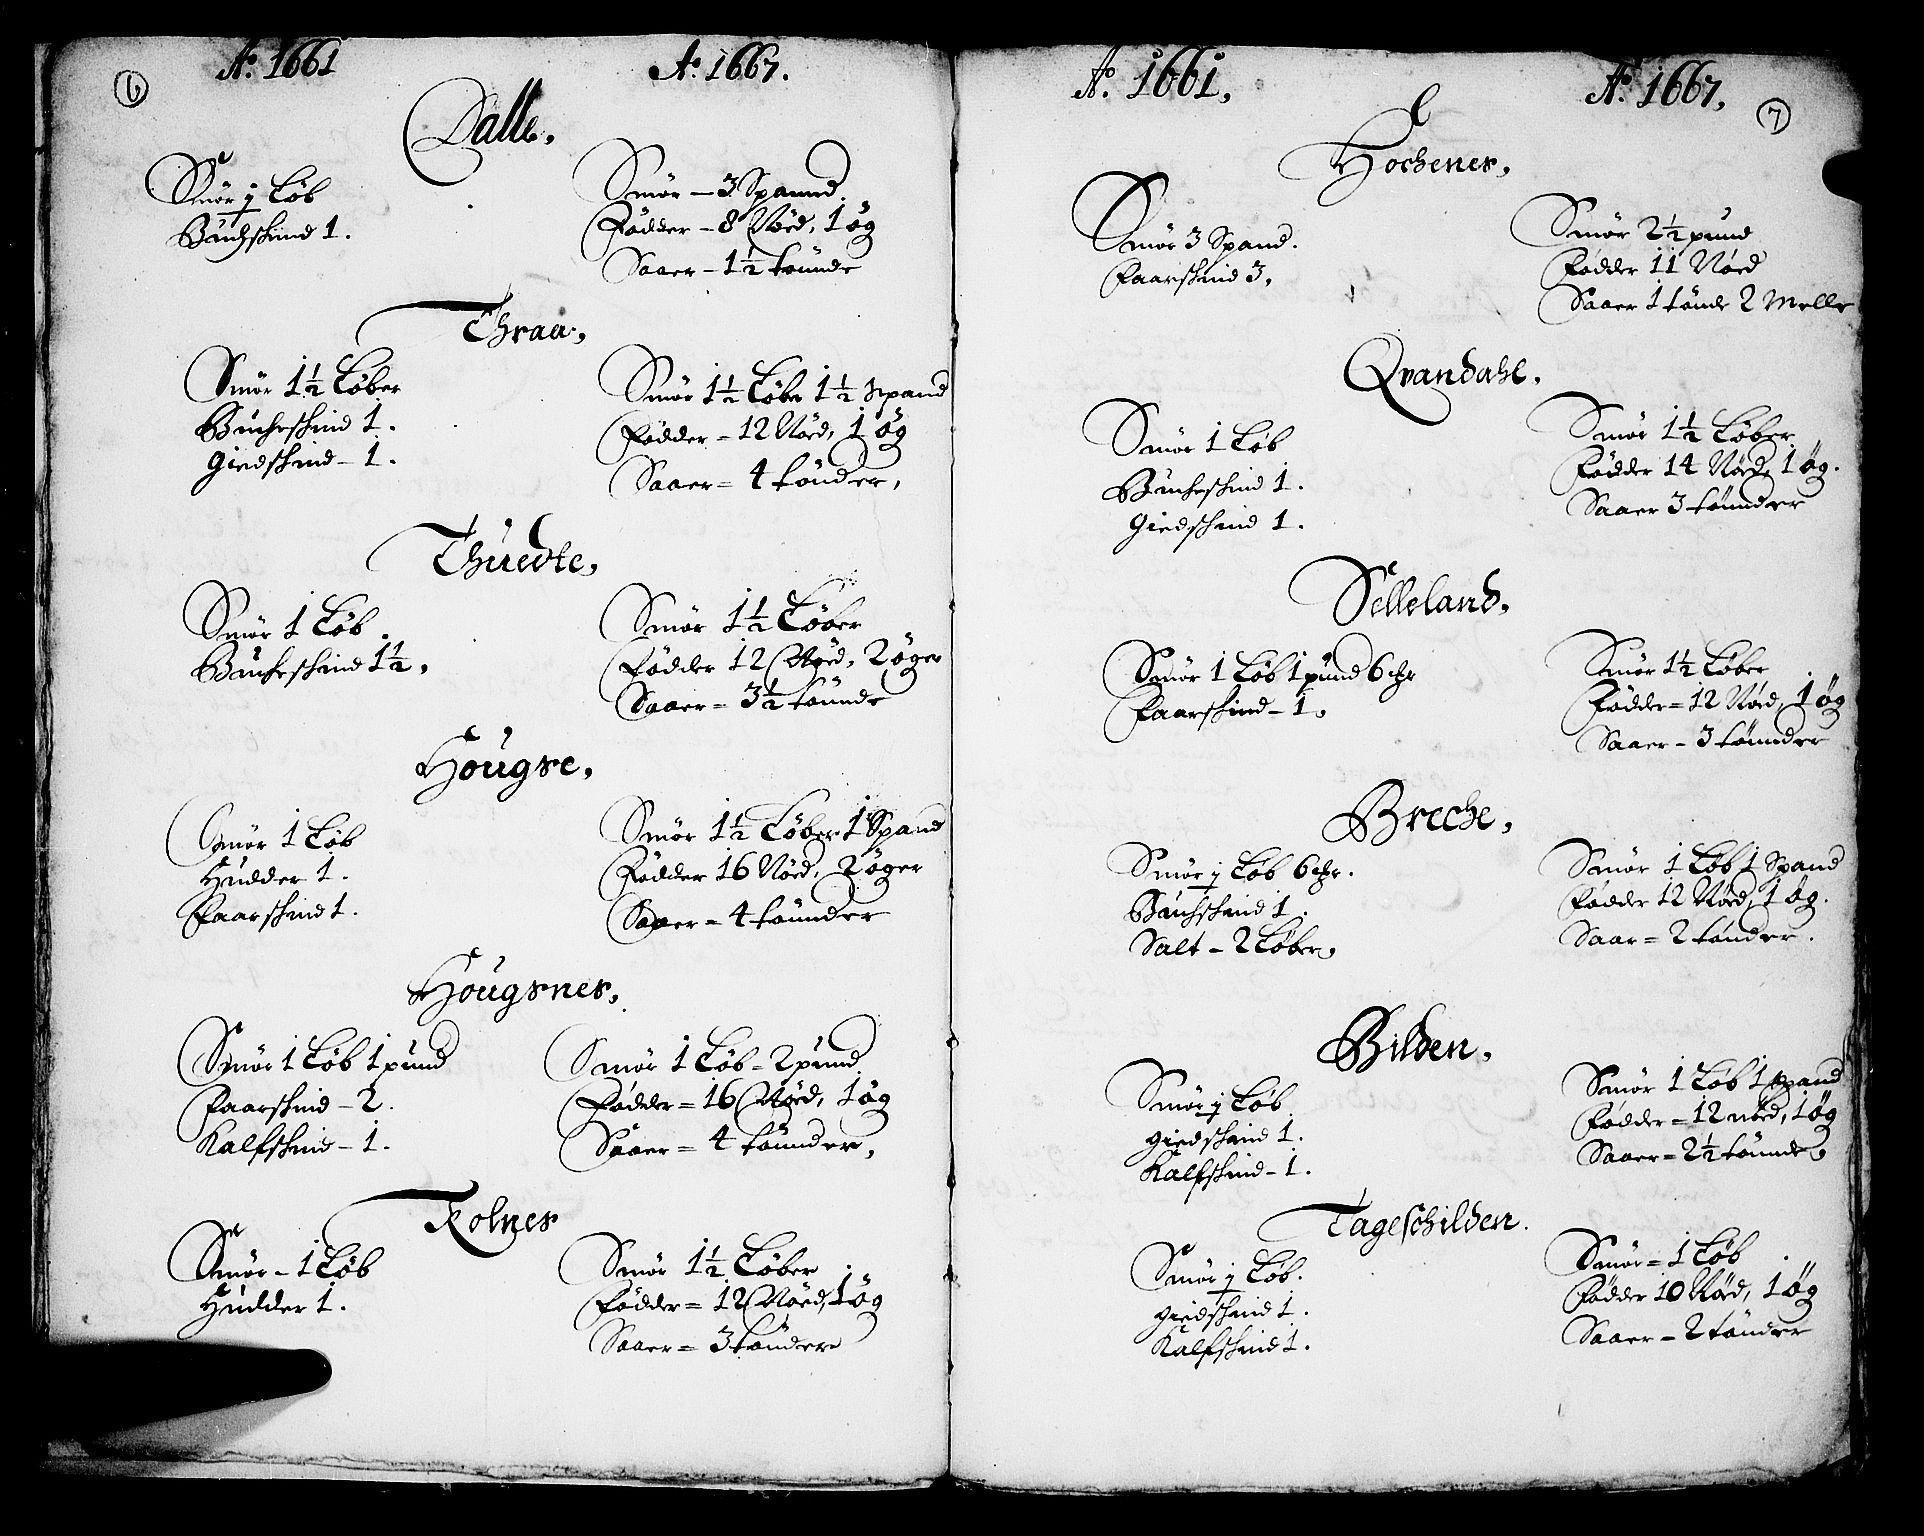 6
Aº 1661
Aº 1667.
Dalle,
Smör j Løb
Buchskind 1.
Smör – 3 Spannd
Födder – 8 Nöed, 1 øg
Saaer – 1½ tönnde
Thraa,
Smör 1½ Løber
Buckeskind 1.
Giedskind – 1.
Smör 1½ Løber 1½ Spand
Födder = 12 Nöed, 1 øg
Saaer = 4 tönder,
Thuedte,
Smör 1 Løb.
Buckeskind 1½,
Smör 1½ Løber
Födder 12 Nöed, 2 øger
Saaer = 3½ tönnde
Hougse,
Smör 1 Løb
Hudder 1.
Faarskind 1.
Smör 1½ Løber 1 Spand
Födder 16 Nöed, 2 øger
Saaer = 4 tönnder
Hougsnes,
Smör 1 Løb 1 pund
Faarskind – 2.
Kalfskind – 1.
Smör 1 Løb = 2 pund
Födder = 16 Nöed, 1 øg
Saaer = 4 tönnder,
Kolnes
Smör – 1 Løb
Hudder 1.
Smör 1½ Løber
Födder = 12 Nöed, 1 øg
Saaer = 3 tönder
Aº. 1661,
Aº. 1667,
7
Hochenes,
Smör 3 Spand.
Faarskind 3,
Smör 2½ pund
Födder 11 Nöed
Saaer 1 tönde 2 Melle
Qvandahl,
Smör 1 Løb
Buckeskind 1.
Giedskind 1.
Smör 1½ Løber
Födder 14 Nöed, 1 øg.
Saaer 3 tönnder
Selleland,
Smör 1 Løb 1 pund 6 chr
Faarskind – 1.
Smör 1½ Løber
Födder = 12 Nöed, 1 øg
Saaer – 3 tönnder
Breche,
Smör j Løb 6 chr.
Buchskind 1.
Salt – 2 Løber,
Smör 1 Løb 1 Spand
Födder 12 Nöed, 1 øg.
Saar = 2 tönder.
Bilden,
Smör j Løb
giedskind 1.
Kalfskind – 1.
Smör 1 Løb 1 spand
Födder = 12 nöed, 1 øg
Saaer = 2½ tönnde,
Tageschilden.
Smör j Løb.
giedskind 1.
Kalfskind 1.
Smör = 1 Løb
Födder 10 Nöed, 1 øg
Saaer – 2 tönder